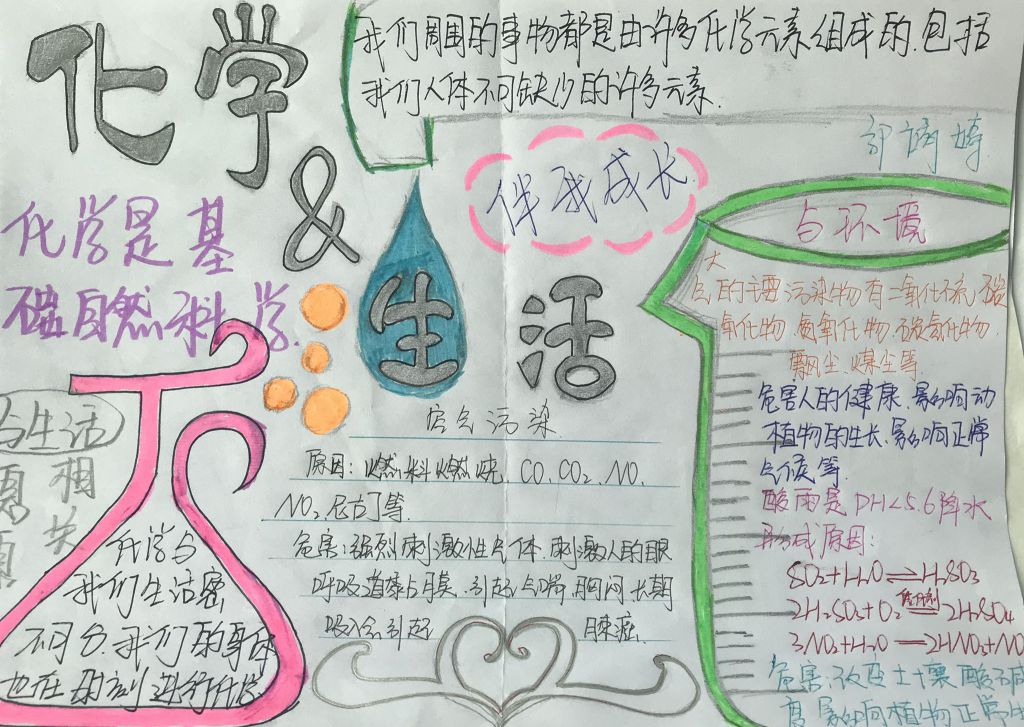 化学
&
生活
我们周围的事物都是由许多化学元素组成的.包括
我们人体不可缺少的许多元素.
伴我成长.
化学是基
础自然科学.
与生活
息相
息关
化学与
我们生活密
不可分.我们的身体
也在时刻进行化学
空气污染
原因:燃料燃烧.CO.CO₂.NO.
NO₂.尼古丁等.
危害:强烈刺激性气体.刺激人的眼
呼吸道黏占膜.引起气喘.胸闷.长期
吸入会引起 肺癌.
与环境
大
气的主要污染物有二氧化硫.碳
氧化物.氮氧化物.碳氢化物.
飘尘.煤尘等.
危害人的健康.影响动
植物的生长.影响正常
气候等.
酸雨是PH<5.6降水
形成原因:
SO₂+H₂O⇌H₂SO₃
2H₂SO₃+O₂ 催化剂 2H₂SO₄
3NO₂+H₂O—2HNO₃+NO
危害:改变土壤酸碱
度影响植物正常生